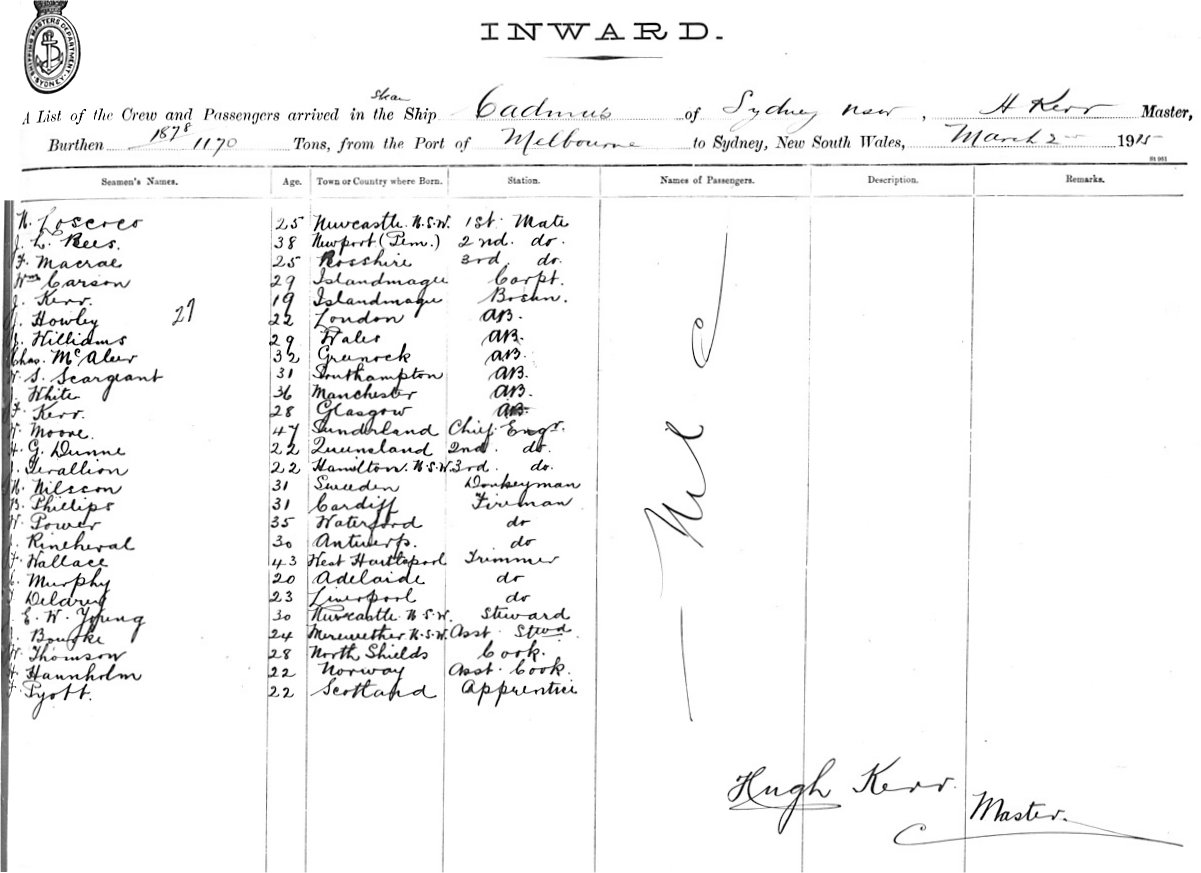 SHIPPING MASTERS DEPARTMENT SYDNEY
INWARD.
Steam
A List of the Crew and Passengers arrived in the Ship Cadmus of Sydney NSW, H Kerr Master,
Burthen 1878 / 1170 Tons, from the Port of Melbourne to Sydney, New South Wales, March 2 1925
Seamen's Names. Age. Town or Country where Born. Station. Names of Passengers. Description. Remarks.
25 Newcastle N.S.W. 1st Mate
J. L. Rees. 38 Newport (Pem.) 2nd. do.
F. Macrae 25 Rosshire 3rd do.
Wm Carson 29 Islandmagee Carpt.
J. Kerr. 19 Islandmagee Bosun.
Howley 22 London AB.
27
Williams 29 Wales AB.
Chas. McAleer 32 Greenock AB.
S. Seargeant 31 Southampton AB.
J. White 36 Manchester AB.
F. Kerr. 28 Glasgow AB.
W. Moore. 47 Sunderland Chief Engr.
H. G. Dunne 22 Queensland 2nd. do.
22 Hamilton. N.S.W. 3rd. do.
N. Nilsson 31 Sweden Donkeyman
B. Phillips 31 Cardiff Fireman
W. Power 35 Waterford do
30 Antwerp. do
F. Wallace 43 West Hartlepool Trimmer
Murphy 20 Adelaide do
23 Liverpool do
E. W. Young 30 Newcastle N.S.W. Steward
J. Bourke 24 Merewether N.S.W. Asst. Stwd
W. Thomson 28 North Shields Cook.
H. Haunholm 22 Norway Asst. Cook.
F. Tyott. 22 Scotland Apprentice
Nil
Hugh Kerr.
Master.